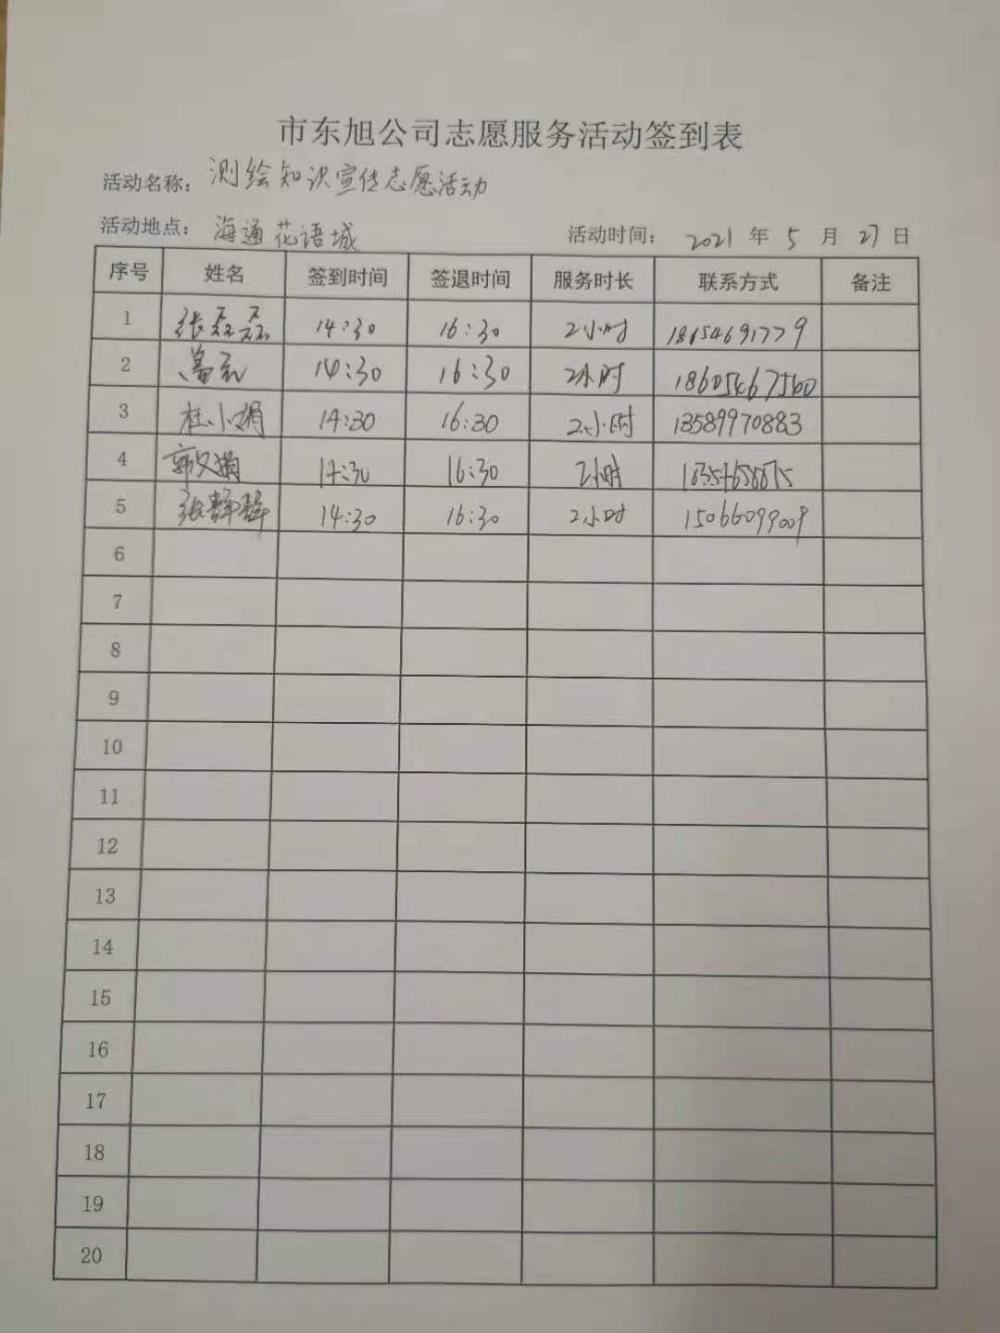 市东旭公司志愿服务活动签到表
活动名称: 测绘知识宣传志愿活动
活动地点: 海通花语城 活动时间: 2021 年 5 月 27 日
序号 姓名 签到时间 签退时间 服务时长 联系方式 备注
1 张磊磊 14:30 16:30 2小时 18654691779
2 14:30 16:30 2小时 18605467560
3 杜小娟 14:30 16:30 2小时 13589970883
4 郭 14:30 16:30 2小时
5 张静静 14:30 16:30 2小时 15066099009
6
7
8
9
10
11
12
13
14
15
16
17
18
19
20